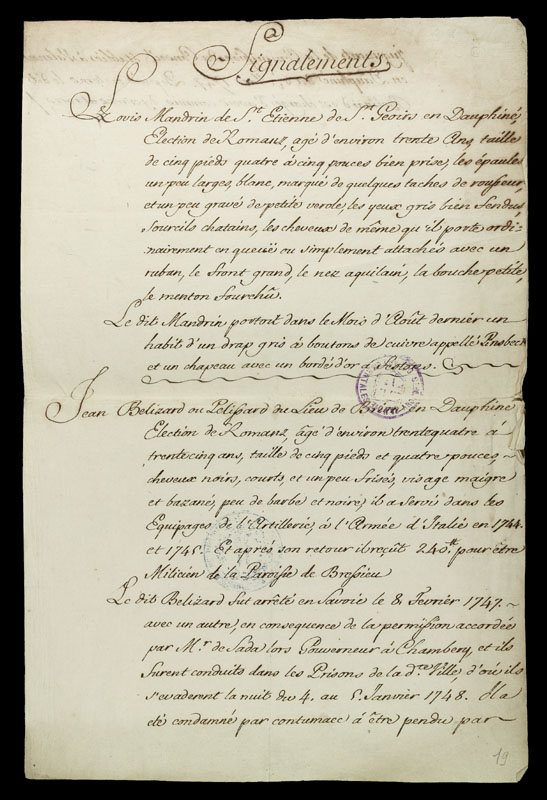 Signalements
Loüis Mandrin de St. Etienne de St. Geoirs en Dauphiné,
Election de Romans, agé d'environ trente Cinq, taille
de cinq pieds quatre à cinq pouces bien prise, les épaules
un peu larges, blanc, marqué de quelques taches de rousseur,
et un peu gravé de petite verole, les yeux gris bien fendus,
sourcils chatains, les cheveux de même qu'il porte ordi-
nairement en queüe ou simplement attachés avec un
ruban, le front grand, le nez aquilain, la bouche petite,
le menton fourchû.
Le dit Mandrin portoit dans le Mois d'Août dernier un
habit d'un drap gris à boutons de cuivre appellé Pinsbeck
et un chapeau avec un bordé d'or a festons.
Jean Belizard ou Pelissard du Lieu de en Dauphiné
Election de Romans, agé d'environ trentequatre à
trentecinq ans, taille de cinq pieds et quatre pouces,
cheveux noirs, courts, et un peu frisés, visage maigre
et bazané, peu de barbe et noire; il a Servi dans les
Equipages de l'Artillerie, à l'Armée d'Italie en 1744.
et 1745. Et aprés son retour il reçût 240.tt pour être
Milicien de la Paroisse de Bressieu
Le dit Belizard fut arrêté en Savoie le 8 Fevrier 1747.
avec un autre, en consequence de la permission accordée
par Mr. de Sada lors Gouverneur à Chambery, et ils
furent conduits dans les Prisons de la d.te Ville, d'où ils
s'evaderent la nuit du 4. au 5. Janvier 1748. Il a
été condamné par contumace à être pendu par
19